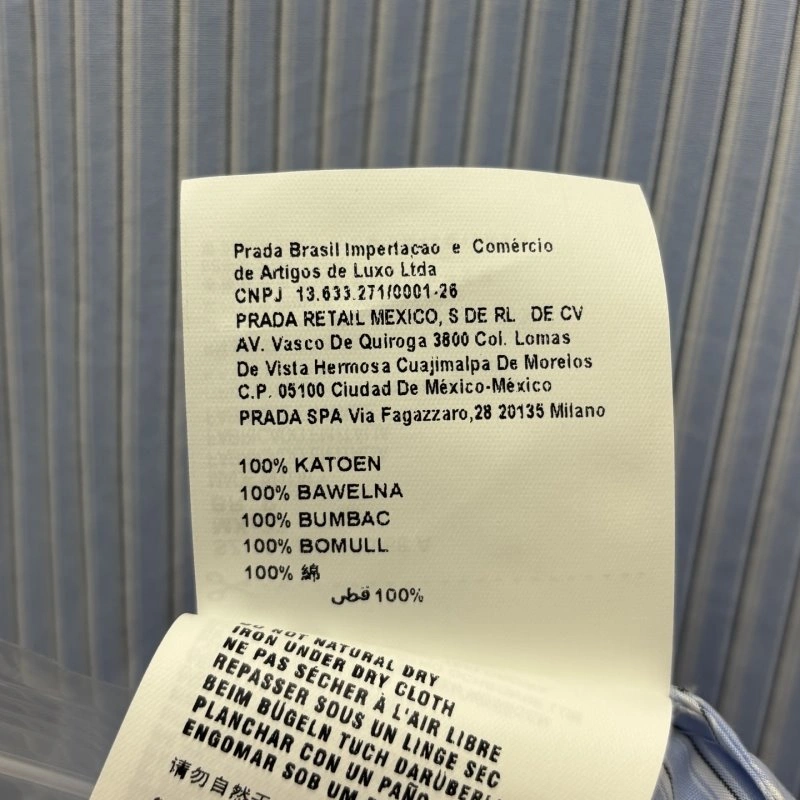 Prada Brasil Impertaçao e Comércio
de Artigos de Luxo Ltda
CNPJ 13.633.271/0001-26
PRADA RETAIL MEXICO, S DE RL DE CV
AV. Vasco De Quiroga 3800 Col. Lomas
De Vista Hermosa Cuajimalpa De Morelos
C.P. 05100 Ciudad De México-México
PRADA SPA Via Fagazzaro,28 20135 Milano
100% KATOEN
100% BAWELNA
100% BUMBAC
100% BOMULL
100% 綿
100% قطن
DO NOT NATURAL DRY
IRON UNDER DRY CLOTH
NE PAS SÉCHER À L'AIR LIBRE
REPASSER SOUS UN LINGE SEC
BEIM BÜGELN TUCH DARÜBERL
PLANCHAR CON UN PAÑO
ENGOMAR SOB UM
请勿自然干